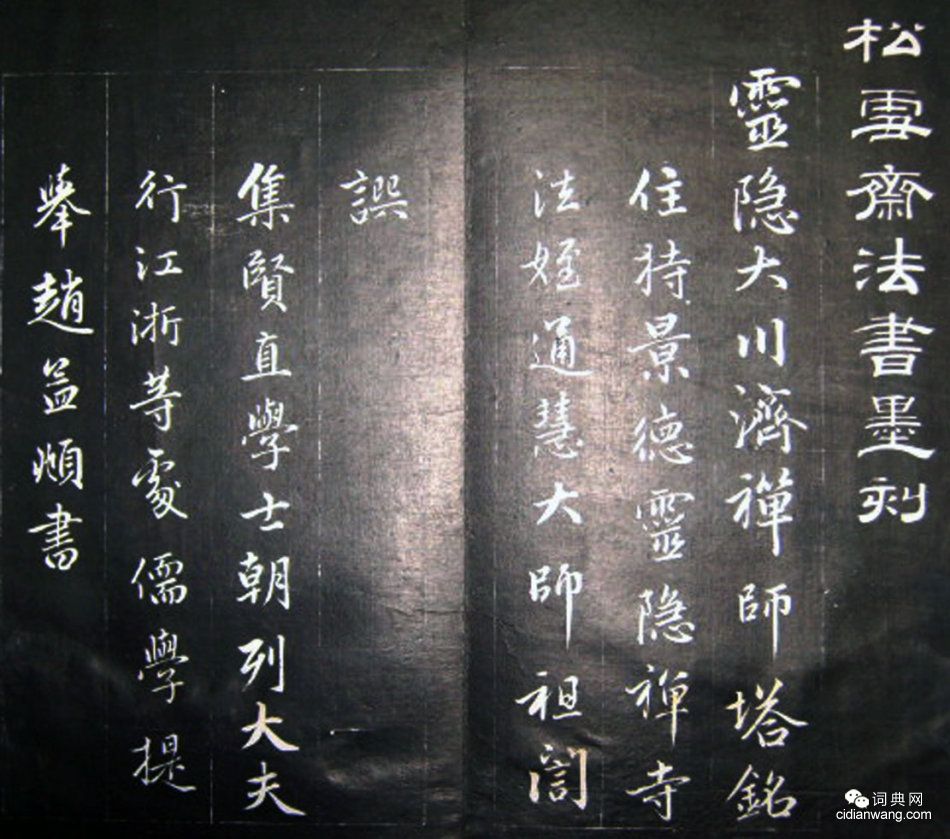 松雪齋法書墨刻
靈隐大川濟禪師塔銘
住持景德靈隐禅寺
法姪通慧大師祖誾
譔
集賢直學士朝列大夫
行江浙等處儒學提
舉趙孟頫書
词典网
cidianwang.com